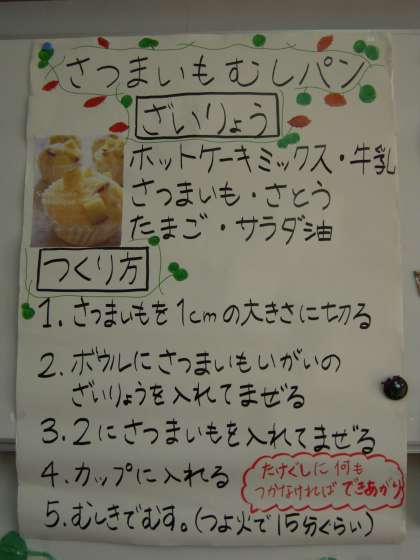 さつまいもむしパン
ざいりょう
ホットケーキミックス・牛乳
さつまいも・さとう
たまご・サラダ油
つくり方
1. さつまいもを1cmの大きさに切る
2. ボウルにさつまいもいがいの
ざいりょうを入れてまぜる
3. 2にさつまいもを入れてまぜる
4. カップに入れる
5. むしきでむす。(つよ火で15分ぐらい)
たけぐしに何も
つかなければできあがり